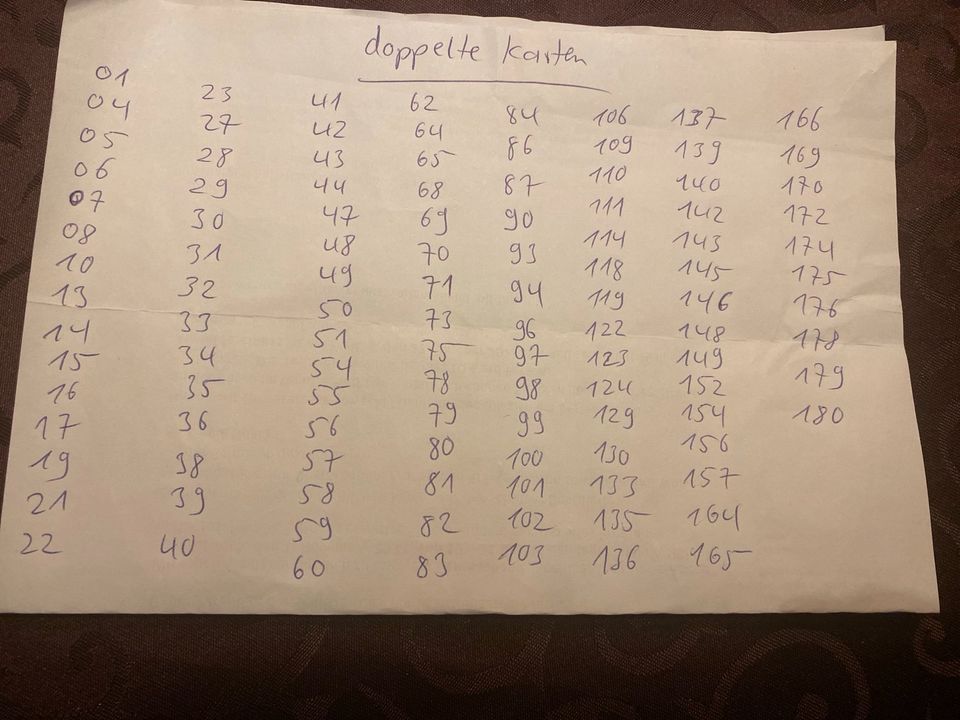 doppelte Karten
01
04
05
06
07
08
10
13
14
15
16
17
19
21
22
23
27
28
29
30
31
32
33
34
35
36
38
39
40
41
42
43
44
47
48
49
50
51
54
55
56
57
58
59
60
62
64
65
68
69
70
71
73
75
78
79
80
81
82
83
84
86
87
90
93
94
96
97
98
99
100
101
102
103
106
109
110
111
114
118
119
122
123
124
129
130
133
135
136
137
139
140
142
143
145
146
148
149
152
154
156
157
164
165
166
169
170
172
174
175
176
178
179
180